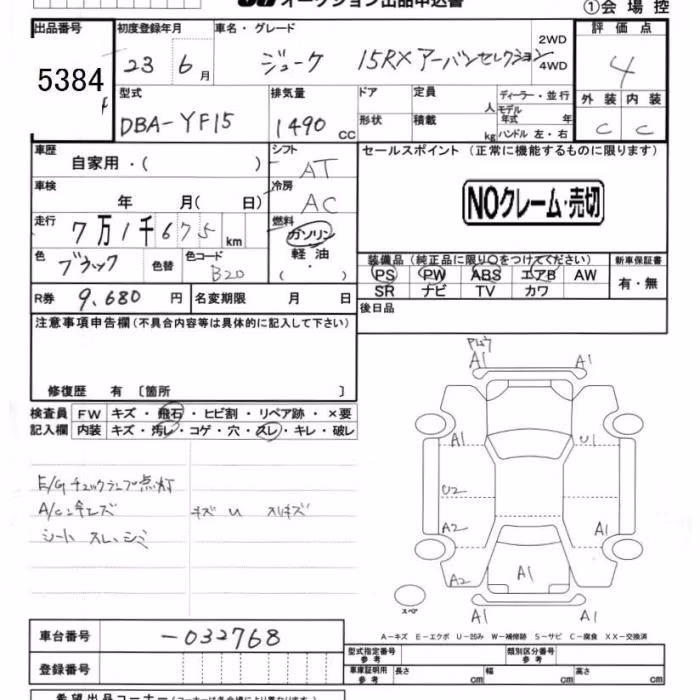 オークション出品申込書
①会場控
出品番号 初度登録年月 車名・グレード 評価点
5384 23 6月 ジューク 15RX アーバンセレクション 2WD 4WD 4
型式 排気量 ドア 定員 人 ディーラー・並行 モデル 外装 内装
DBA-YF15 1490 CC 形状 積載 kg 年式 年 ハンドル 左・右 C C
車歴 自家用・( ) シフト AT セールスポイント (正常に機能するものに限ります)
車検 年 月( 日) 冷房 AC NOクレーム・売切
走行 7万1千675km 燃料 ガソリン 軽油 ・ ( )
色 ブラック 色替 色コード B20 装備品(純正品に限り○をつけてください) 新車保証書
PS PW ABS エアB AW 有・無
SR ナビ TV カワ
R券 9,680円 名変期限 月 日 後日品
注意事項申告欄(不具合内容等は具体的に記入して下さい)
修復歴 有 〔箇所 〕
検査員 FW キズ・飛石・ヒビ割・リペア跡・×要
記入欄 内装 キズ・汚レ・コゲ・穴・スレ・キレ・破レ
E/Gチェックランプ点灯
A/C冷エズ キズ U スレキズ
シート スレ、シミ
A1 A1
A1 U1
U2
A2 A1
A2 A1
スペア
A1 A1
A-キズ E-エクボ U-凹み W-補修跡 S-サビ C-腐食 XX-交換済
車台番号 -032768 型式指定番号 参考 類別区分番号 参考
登録番号 車庫証明用 参考 長さ cm 幅 cm 高さ cm
希望出品コーナー(コーナーは各会場により異なります)